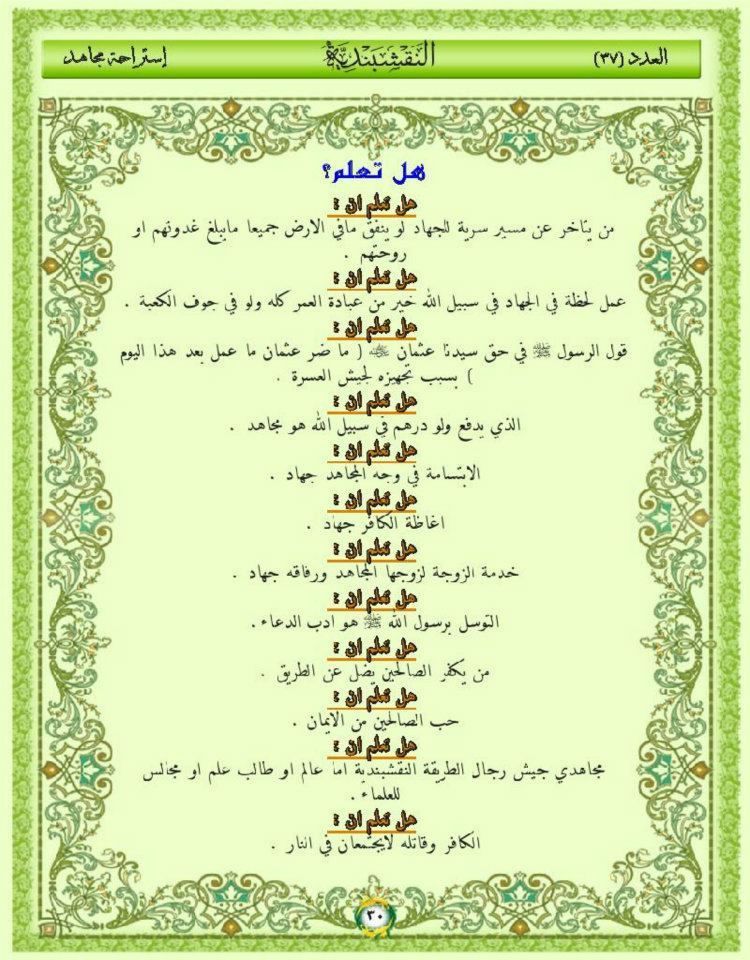 العدد (٣٧)
النقشبندية
إستراحة مجاهد
هل تعلم؟
هل تعلم ان :
من يتأخر عن مسير سرية للجهاد لو ينفق مافي الارض جميعا مايبلغ غدوتهم او
روحتهم .
هل تعلم ان :
عمل لحظة في الجهاد في سبيل الله خير من عبادة العمر كله ولو في جوف الكعبة .
هل تعلم ان :
قول الرسول ﷺ في حق سيدنا عثمان ؓ ( ما ضر عثمان ما عمل بعد هذا اليوم
) بسبب تجهيزه لجيش العسرة .
هل تعلم ان :
الذي يدفع ولو درهم في سبيل الله هو مجاهد .
هل تعلم ان :
الابتسامة في وجه المجاهد جهاد .
هل تعلم ان :
اغاظة الكافر جهاد .
هل تعلم ان :
خدمة الزوجة لزوجها المجاهد ورفاقه جهاد .
هل تعلم ان :
التوسل برسول الله ﷺ هو ادب الدعاء .
هل تعلم ان :
من يكفر الصالحين يضل عن الطريق .
هل تعلم ان :
حب الصالحين من الايمان .
هل تعلم ان :
مجاهدي جيش رجال الطريقة النقشبندية اما عالم او طالب علم او مجالس
للعلماء .
هل تعلم ان :
الكافر وقاتله لايجتمعان في النار .
٣٠